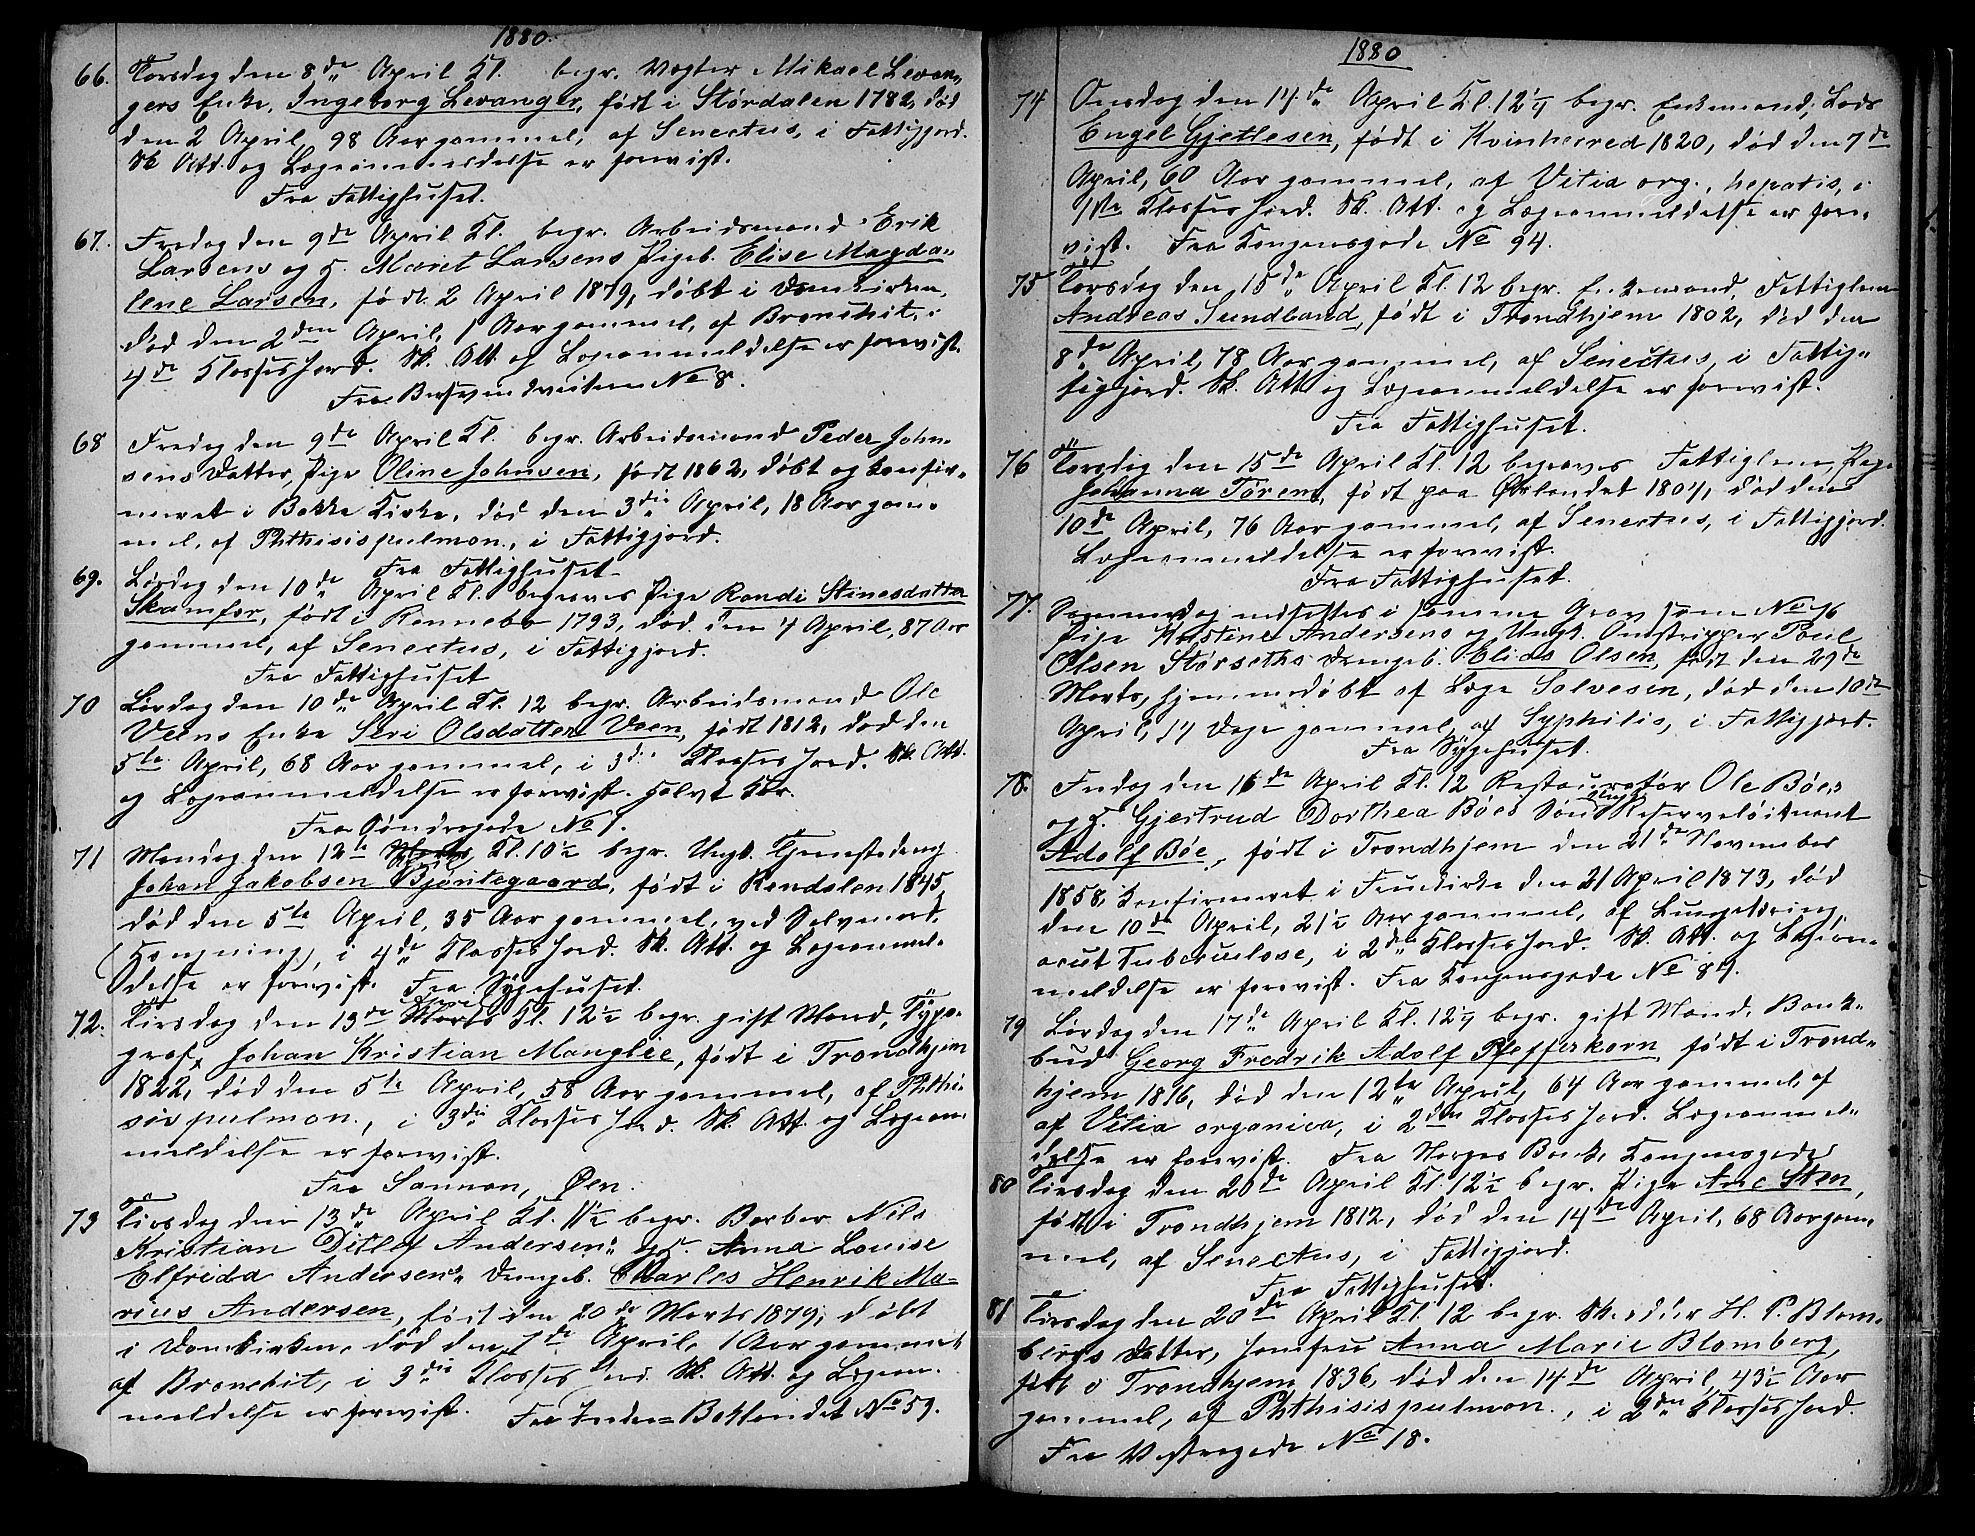 1880.
66. Torsdag den 8de April Kl. begr. Vægter Mikael Levan-
gers Enke, Ingeborg Levanger, født i Størdalen 1782, død
den 2 April, 98 Aar gammel, af Senectus, i Fattigjord.
Sk. Att. og Lægeanmeldelse er forevist.
Fra Fattighuset.
67. Fredag den 9de April Kl. begr. Arbeidsmand Erik
Larsens og H. Maret Larsens Pigeb. Elise Magda-
lene Larsen, født 2 April 1879, døbt i Domkirken,
død den 2den April, 1 Aar gammel, af Bronchit, i
4de Klasses Jord. Sk. Att. og Lægeanmeldelse er forevist.
Fra Bersvendveiten No 8.
68 Fredag den 9de April Kl. begr. Arbeidsmand Peder John-
sens Datter, Pige Oline Johnsen, født 1862, døbt og konfir-
meret i Bakke Kirke, død den 3die April, 18 Aar gam-
mel, af Phthisis pulmon., i Fattigjord.
Fra Fattighuset.
69. Lørdag den 10de April Kl. begraves Pige Randi Stinesdatter
Skamfer, født i Rennebo 1793, død den 4 April, 87 Aar
gammel, af Senectus, i Fattigjord.
Fra Fattighuset
70 Lørdag den 10de April Kl. 12 begr. Arbeidsmand Ole
Veens Enke Seri Olsdatter Veen, født 1812, død den
5te April, 68 Aar gammel, i 3die Klasses Jord. Sk. Att.
og Lægeanmeldelse er forevist. Halvt Kor.
Fra Søndregade No 1.
71 Mandag den 12te Marts April Kl. 10½ begr. Ungk. Tjenestedreng
Johan Jakobsen Bjøntegaard, født i Rendalen 1845,
død den 5te April, 35 Aar gammel, ved Selvmord,
(Hængning), i 4de Klasses Jord. Sk. Att. og Lægeanmel-
delse er forevist. Fra Sygehuset.
72. Tirsdag den 13de Marts April Kl. 12½ begr. gift Mand, Typo-
graf, Johan Kristian Manglie, født i Trondhjem
1822, død den 5te April, 58 Aar gammel, af Phthi-
sis pulmon., i 3die Klasses Jord. Sk. Att. og Lægean-
meldelse er forevist.
Fra Sannan, Øen.
73 Tirsdag den 13de April Kl. 11½ begr. Barber Nils
Kristian Ditlef Andersens og H. Anna Louise
Elfrida Andersens Drengeb. Charles Henrik Ma-
rius Andersen, født den 20de Marts 1879, døbt
i Domkirken, død den 7de April, 1 Aar gammel
af Bronchit, i 3die Klasses Jord. Sk. Att. og Lægean-
meldelse er forevist. Fra Indre-Baklandet No 59.
1880
74 Onsdag den 14de April Kl. 12¼ begr. Enkemand, Lods
Engel Gjetlesen, født i Kvinherred 1820, død den 7de
April, 60 Aar gammel, af Vitia org., hepatis, i
1ste Klasses Jord. Sk. Att. og Lægeanmeldelse er fore-
vist. Fra Kongensgade No 94.
75 Torsdag den 15de April Kl. 12 begr. Enkemand, Fattiglem
Andreas Sundland, født i Trondhjem 1802, død den
8de April, 78 Aar gammel, af Senectus, i Fattig-
tigjord. Sk. Att. og Lægeanmeldelse er forevist.
Fra Fattighuset.
76 Torsdag den 15de April Kl. 12 begraves Fattiglem, Pige
Johanna Tørem, født paa Ørlandet 1804, død den
10de April, 76 Aar gammel, af Senectus, i Fattigjord.
Lægeanmeldelse er forevist.
Fra Fattighuset.
77. Sammedag nedsettes i samme Grav som No 76
Pige Kristine Andersens og Ungk. Omstripper Poul
Olsen Størseths Drengeb. Elias Olsen, født den 29de
Marts, hjemmedøbt af Læge Solvesen, død den 10de
April, 14 Dage gammel, af Syphilis, i Fattigjord.
Fra Sygehuset.
78. Fredag den 16de April Kl. 12 Restauratør Ole Bøes
og H. Gjertrud Dorthea Bøes Søn Ungk. Reserveløitnant
Adolf Bøe, født i Trondhjem den 21de November
1858, konfirmeret i Fruekirke den 21 April 1873, død
den 10de April, 21½ Aar gammel, af Lungetæring,
acut Tuberculose, i 2den Klasses Jord. Sk. Att. og Lægean-
meldelse er forevist. Fra Kongensgade No 89.
79 Lørdag den 17de April Kl. 12¼ begr. gift Mand, Bank-
bud Georg Fredrik Adolf Pfefferkorn, født i Trond-
hjem 1816, død den 12te April, 64 Aar gammel, af
af Vitia organica, i 2den Klasses Jord. Lægeanmel-
delse er forevist. Fra Norges Bank, Kongensgade
80 Tirsdag den 20de April Kl. 12½ begr. Pige Ane Sten,
født i Trondhjem 1812, død den 14de April, 68 Aar gam-
mel, af Senectus, i Fattigjord.
Fra Fattighuset.
81 Tirsdag den 20de April Kl. 12 begr. Skræder H. P. Blom-
bergs Datter, Jomfru Anna Marie Blomberg,
født i Trondhjem 1836, død den 14de April, 43½ Aar
gammel, af Phthisis pulmon., i 2den Klasses Jord.
Fra Vestregade No 18.